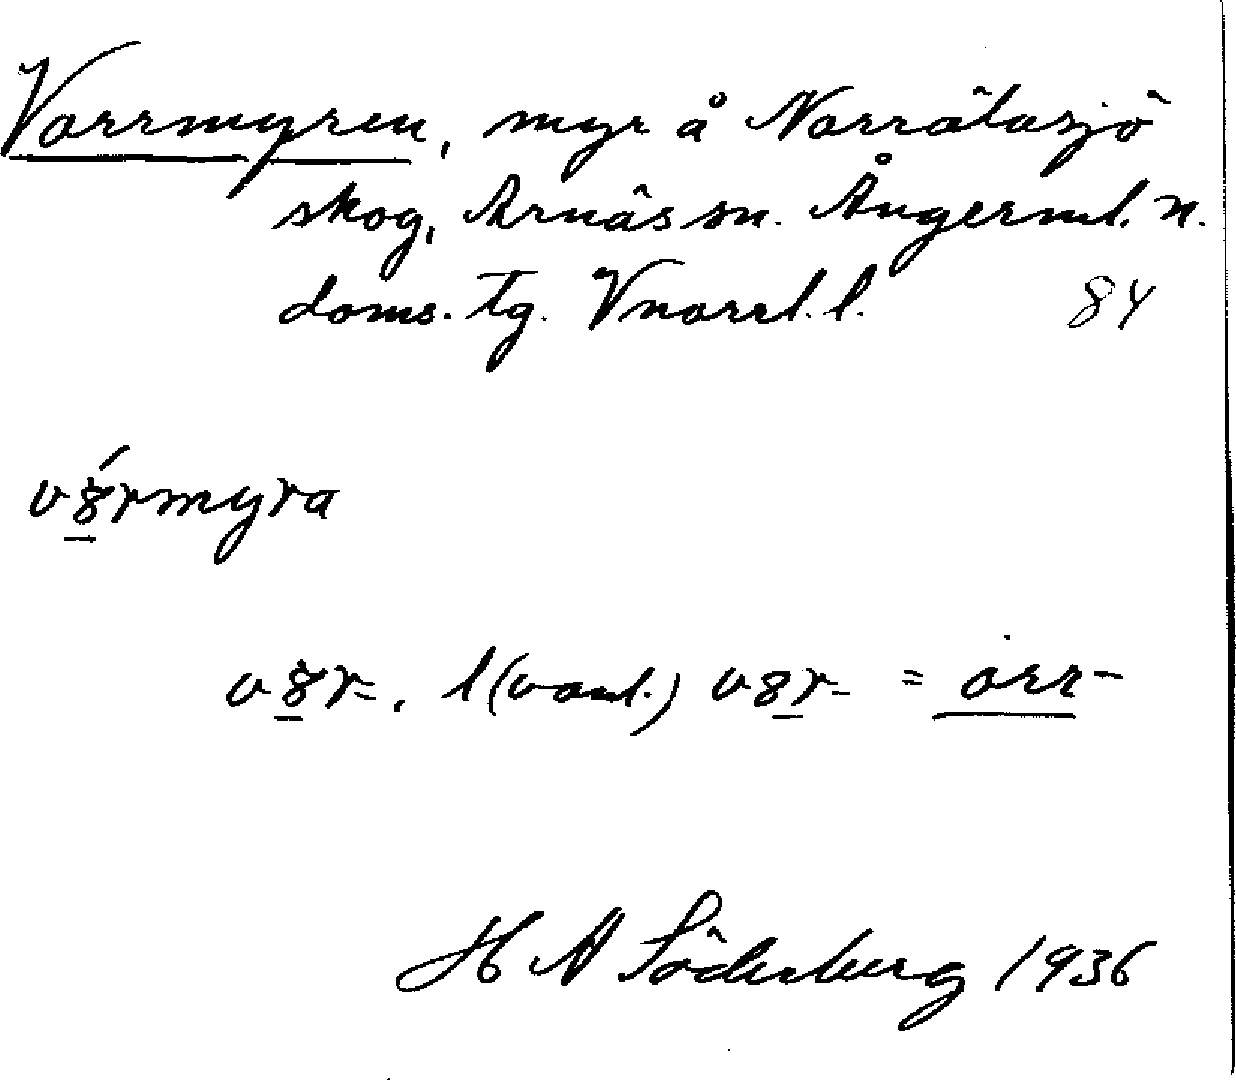 Vorrmyren, myr å Norrälasjö
skog, Arnäs sn. Ångerml. n.
doms. tg. Vnorrl. l. 84
v8́rmyra
v8r=, l(vanl.) v8r- = orr-
H A Söderberg 1936